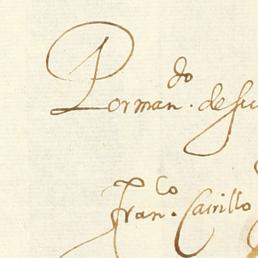 Por man.do de su
Fran.co Carrillo